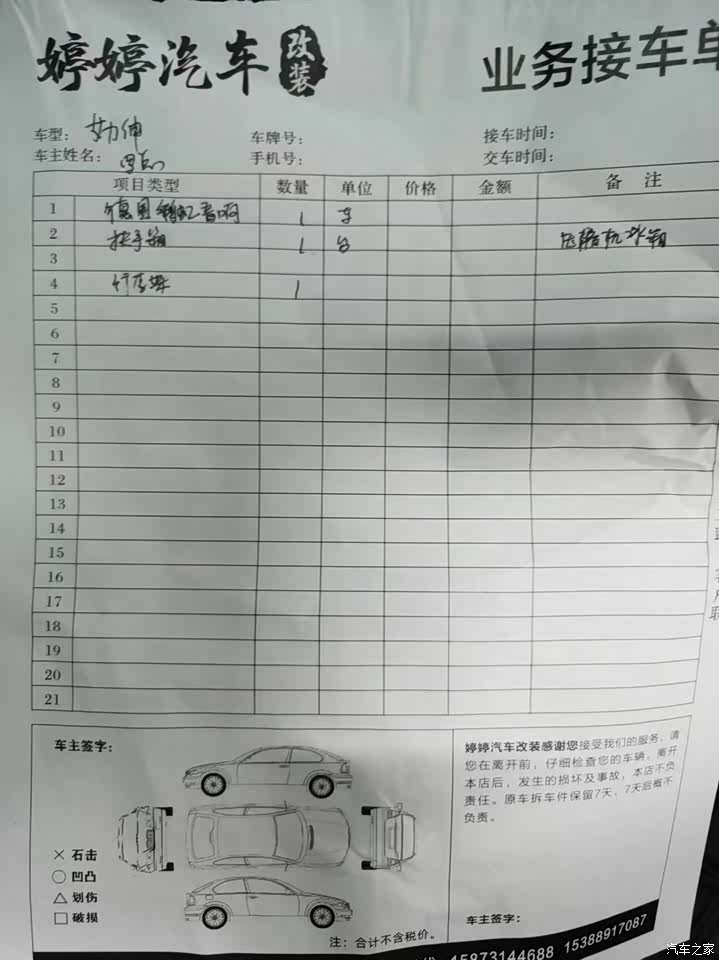 婷婷汽车改装
业务接车单
车型: 劲伸 车牌号: 接车时间:
车主姓名: 手机号: 交车时间:
项目类型 数量 单位 价格 金额 备 注
1 德国 1
2 扶手箱 1 台 压缩机冰箱
3
4 行李架 1
5
6
7
8
9
10
11
12
13
14
15
16
17
18
19
20
21
车主签字:
× 石击
○ 凹凸
△ 划伤
□ 破损
注: 合计不含税价。
婷婷汽车改装感谢您接受我们的服务, 请
您在离开前, 仔细检查您的车辆, 离开
本店后, 发生的损坏及事故, 本店不负
责任。原车拆车件保留7天, 7天后概不
负责。
车主签字:
15873144688 15388917087
汽车之家